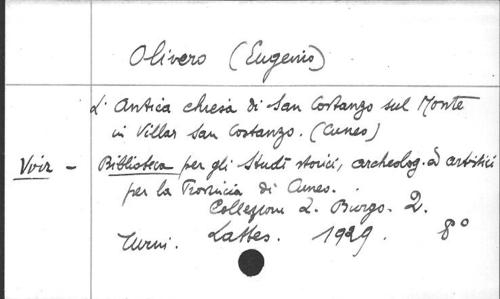 Olivero (Eugenio)
L'Antica chiesa di San Costanzo sul Monte
in Villar San Costanzo. (Cuneo)
Voir - Biblioteca per gli Studi storici, archeolog. ed artistici
per la Provincia di Cuneo.
Collezione L. Burgo. 2.
Lattes. 1929. 8°